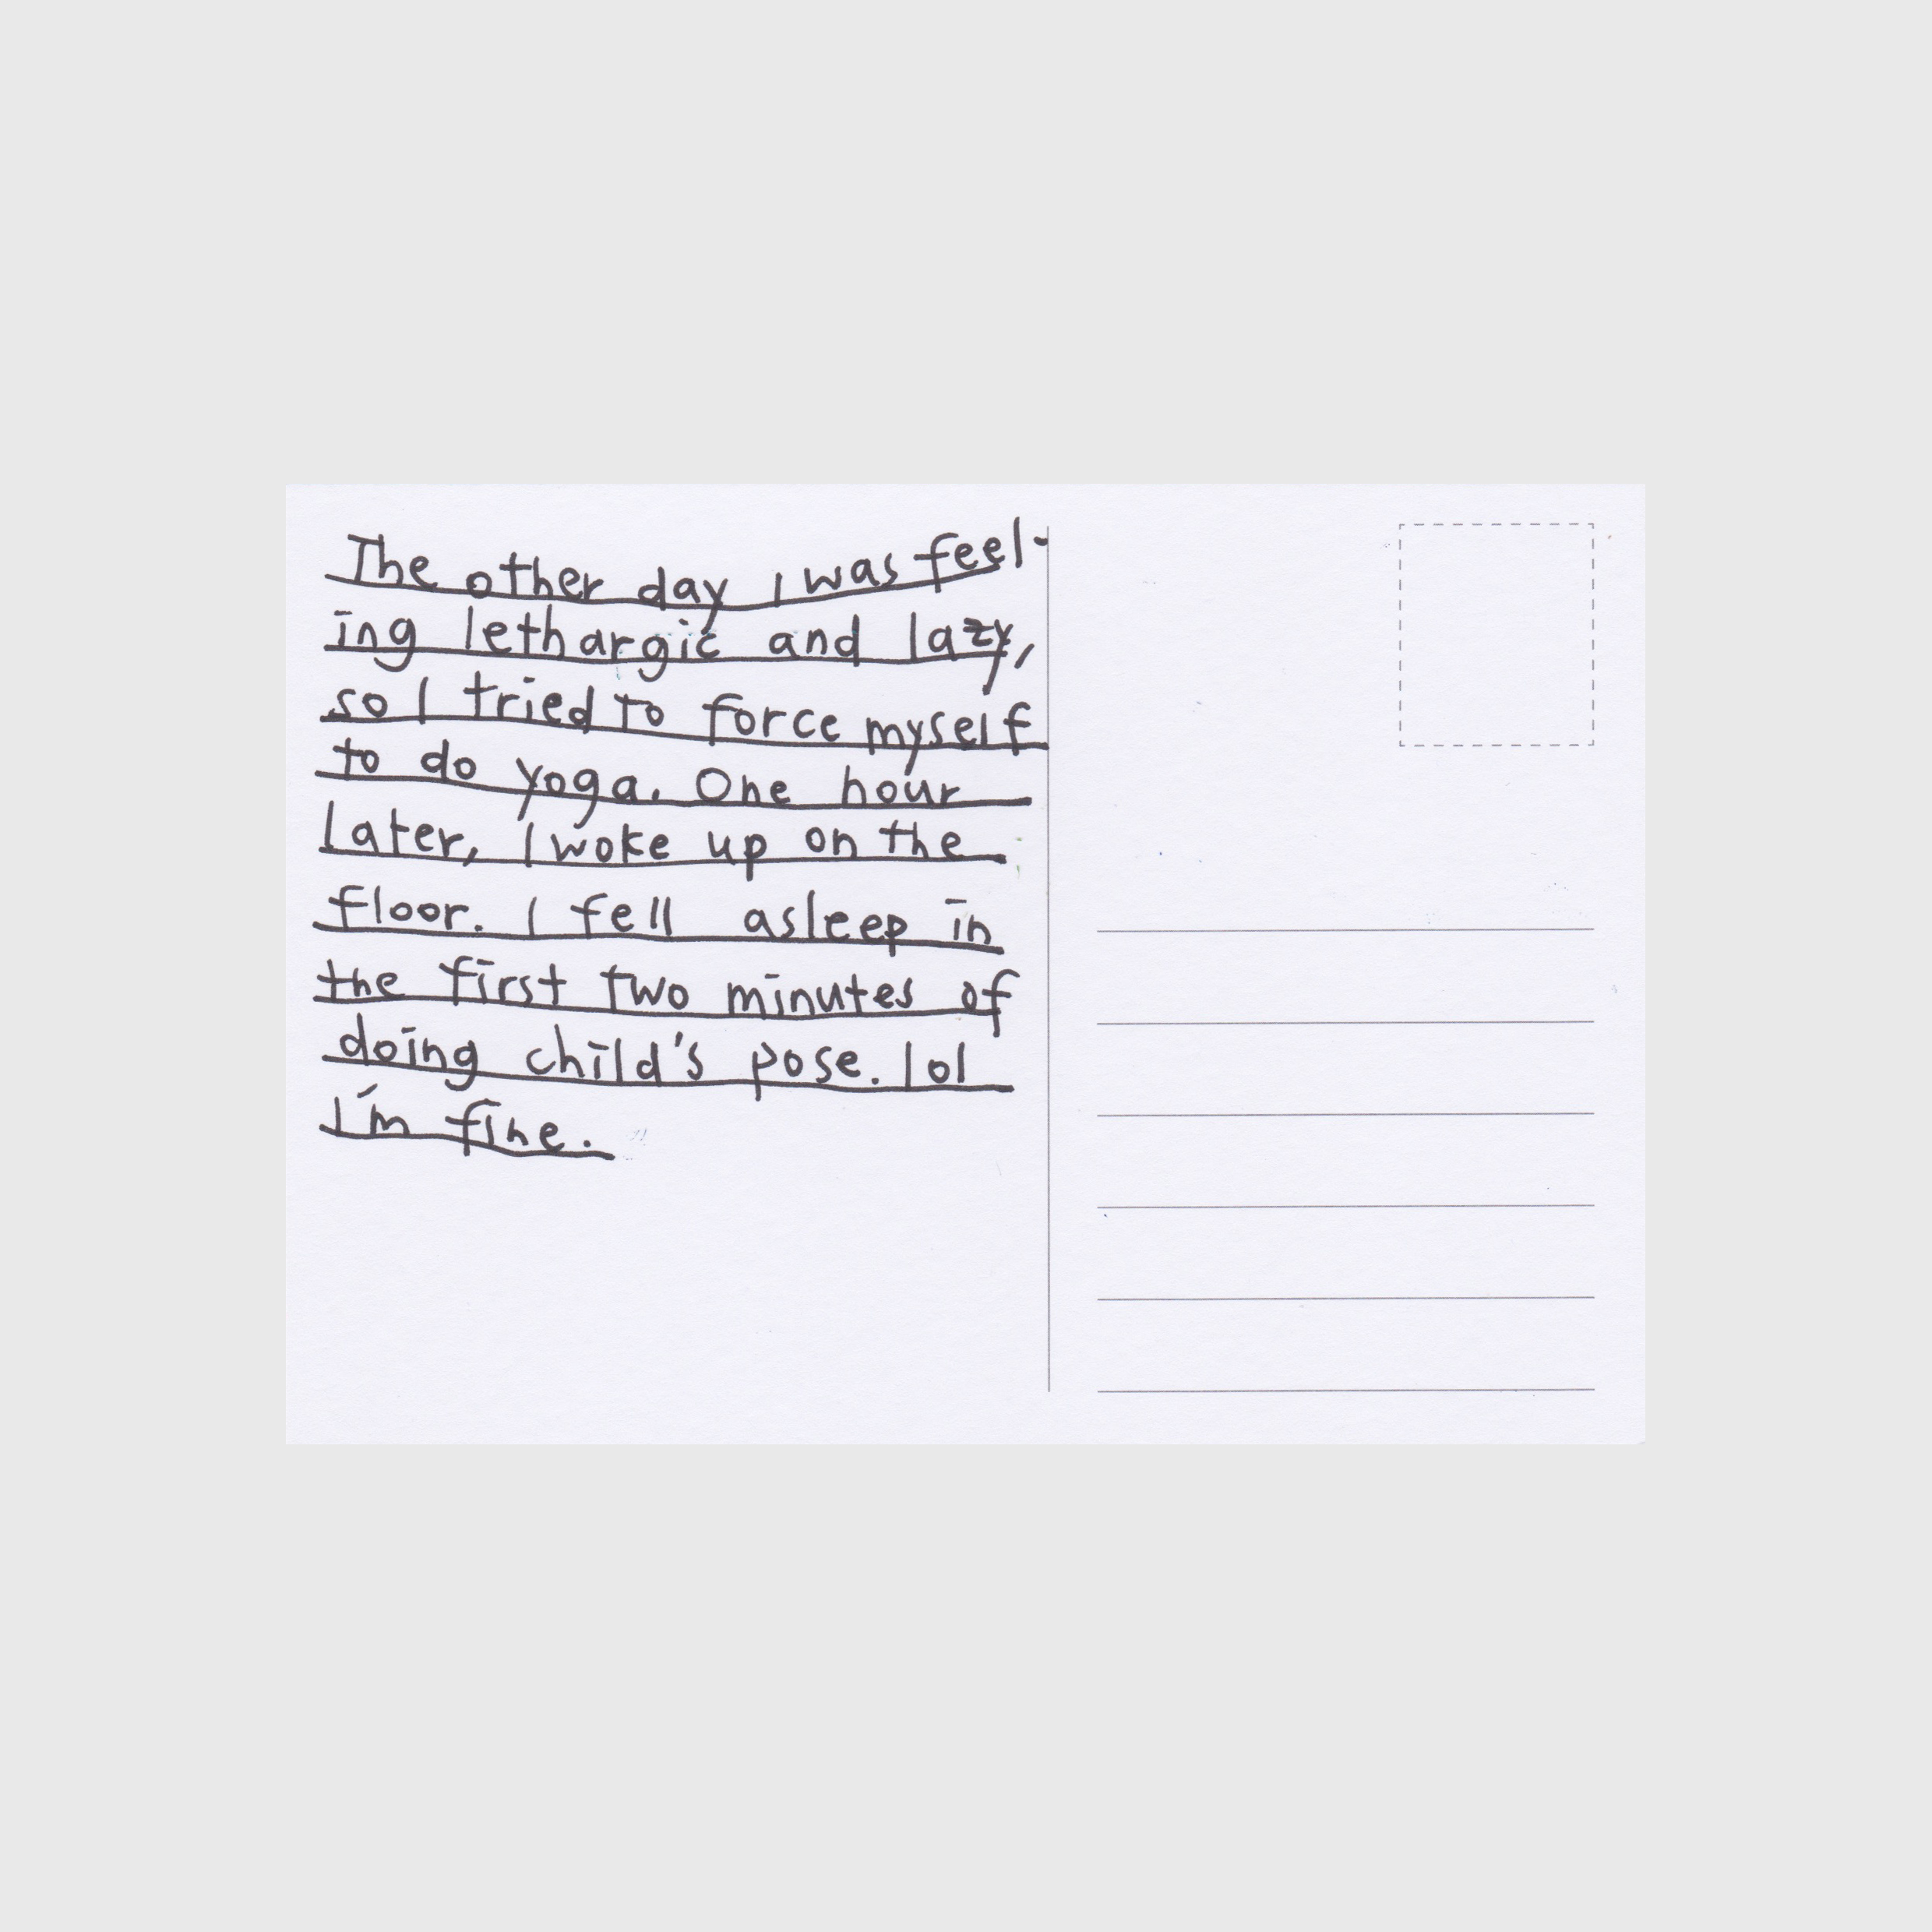 The other day I was feel-
ing lethargic and lazy,
so I tried to force myself
to do yoga. One hour
later, I woke up on the
floor. I fell asleep in
the first two minutes of
doing child's pose. lol
I'm fine.